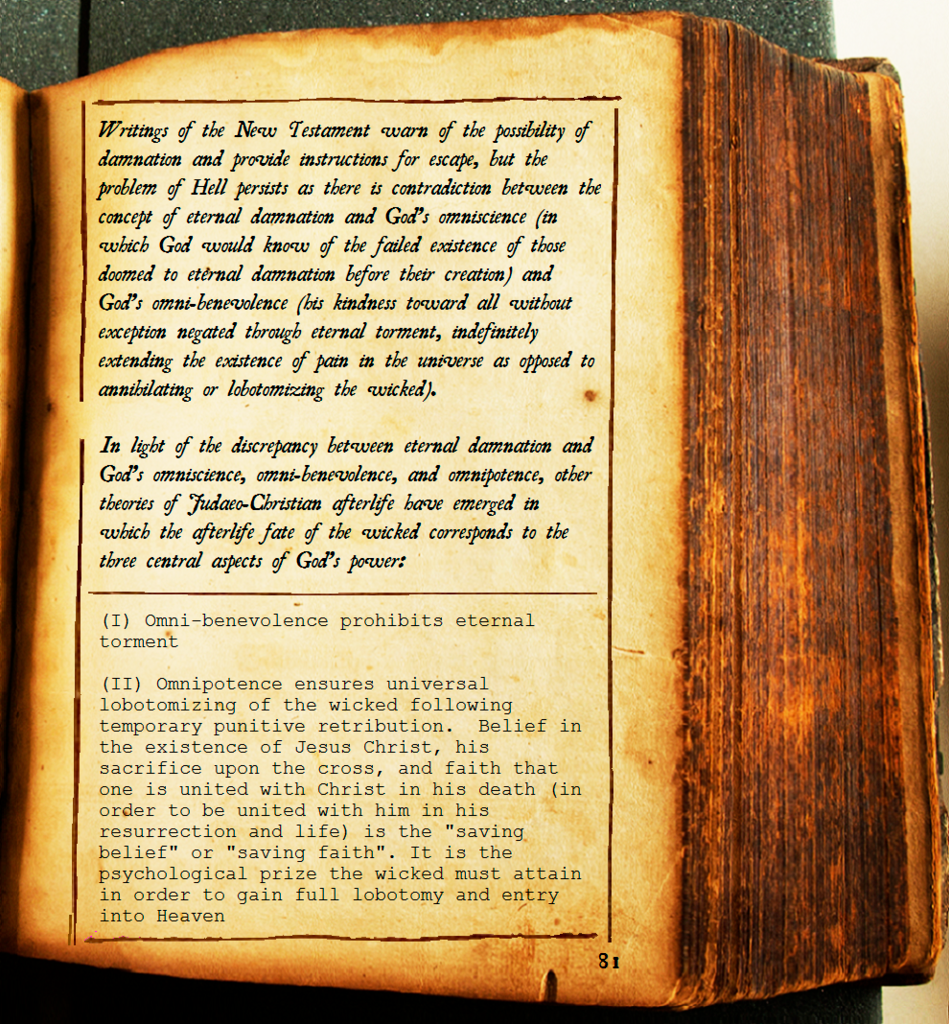 Writings of the New Testament warn of the possibility of
damnation and provide instructions for escape, but the
problem of Hell persists as there is contradiction between the
concept of eternal damnation and God's omniscience (in
which God would know of the failed existence of those
doomed to eternal damnation before their creation) and
God's omni-benevolence (his kindness toward all without
exception negated through eternal torment, indefinitely
extending the existence of pain in the universe as opposed to
annihilating or lobotomizing the wicked).
In light of the discrepancy between eternal damnation and
God's omniscience, omni-benevolence, and omnipotence, other
theories of Judaeo-Christian afterlife have emerged in
which the afterlife fate of the wicked corresponds to the
three central aspects of God's power:
(I) Omni-benevolence prohibits eternal
torment
(II) Omnipotence ensures universal
lobotomizing of the wicked following
temporary punitive retribution.  Belief in
the existence of Jesus Christ, his
sacrifice upon the cross, and faith that
one is united with Christ in his death (in
order to be united with him in his
resurrection and life) is the "saving
belief" or "saving faith". It is the
psychological prize the wicked must attain
in order to gain full lobotomy and entry
into Heaven
81